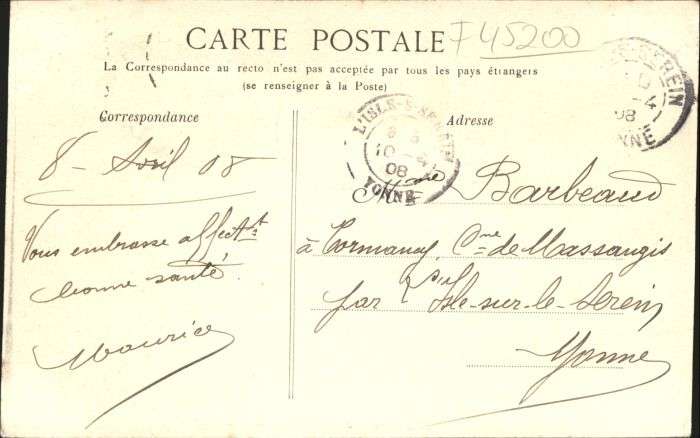 CARTE POSTALE
F45200
La Correspondance au recto n'est pas acceptée par tous les pays étrangers
(se renseigner à la Poste)
Correspondance
Adresse
8 - Avril 08
Vous embrasse affect.t
bonne santé
Maurice
Mme Barbeaud
à Tormancy, Cne de Massangis
par L'Isle-sur-le-Serein
Yonne
L'ISLE-S-SEREIN
10 -4
08
YONNE
REIN
-4
08
YONNE